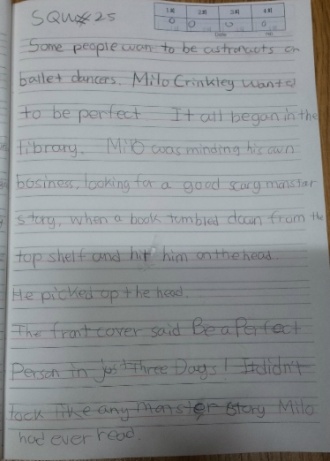 SQUX 25
1회 2회 3회 4회
0 0 0 0
Some people wan to be astronauts or
ballet dancers. Milo Crinkley wanted
to be perfect It all began in the
library. Milo was minding his own
business, looking for a good scary monstar
story, when a book tumbled down from the
top shelf and hit him on the head.
He picked op the head.
The front cover said Be a Perfect
Person in jos Three Days! It didn't
lock like any monster story Milo
had ever read.